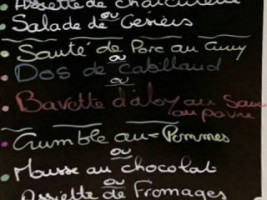 Assiette de charcuterie
ou
Salade de Gésiers
Sauté de Porc au Curry
ou
Dos de cabillaud
ou
Bavette d'aloyau Sauce
au poivre
Crumble aux Pommes
ou
Mousse au chocolat
ou
Assiette de Fromages